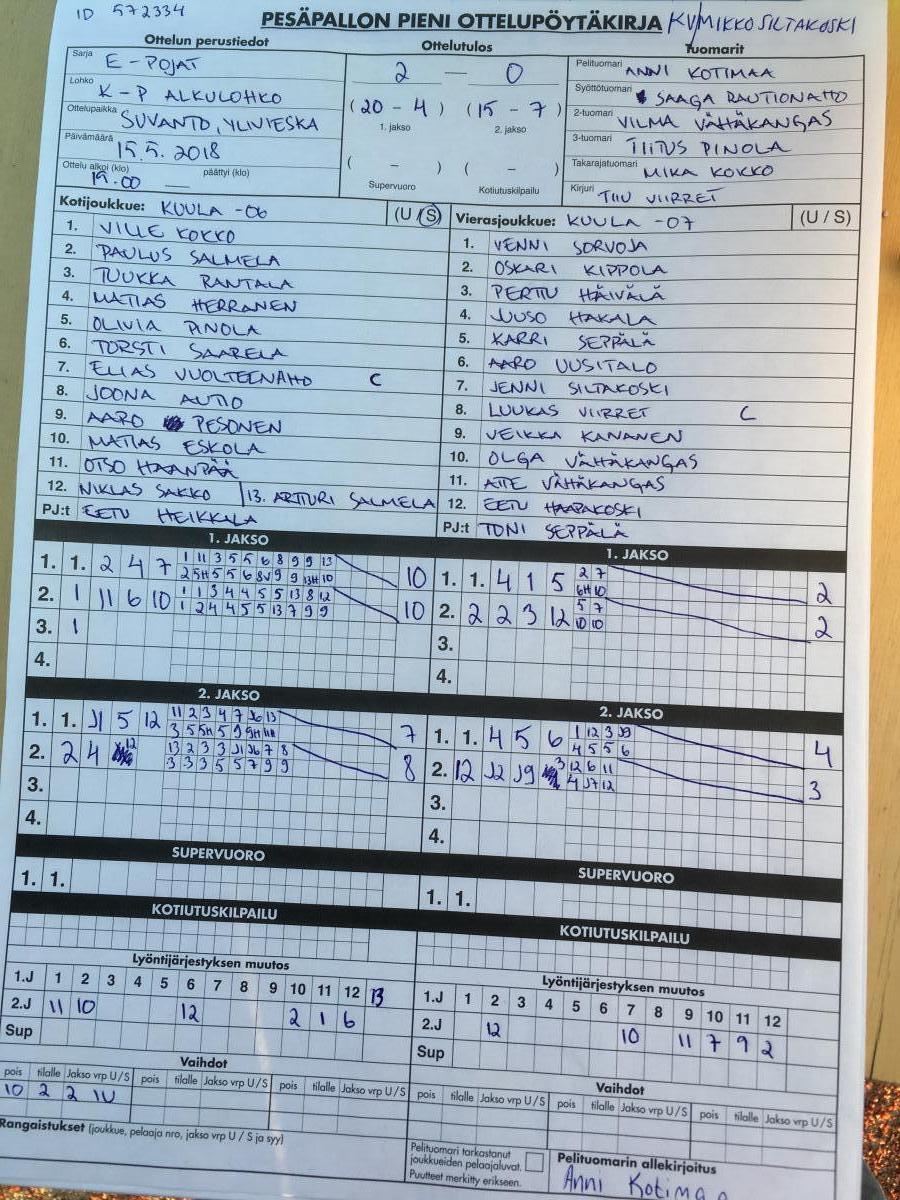 ID 572334
PESÄPALLON PIENI OTTELUPÖYTÄKIRJA KV/MIKKO SILTAKOSKI
Ottelun perustiedot
Sarja E-POJAT
Lohko K-P ALKULOHKO
Ottelupaikka SUVANTO, YLIVIESKA
Päivämäärä 15.5.2018
Ottelu alkoi (klo) 19.00 päättyi (klo) —
Ottelutulos
2 — 0
(20 - 4) (15 - 7)
1. jakso 2. jakso
( - ) ( - )
Supervuoro Kotiutuskilpailu
Tuomarit
Pelituomari ANNI KOTIMAA
Syöttötuomari SAAGA RAUTIONAHO
2-tuomari VILMA VÄHÄKANGAS
3-tuomari TIITUS PINOLA
Takarajatuomari MIKA KOKKO
Kirjuri TIIU VIIRRET
Kotijoukkue: KUULA -06 (U/S)
1. VILLE KOKKO
2. PAULUS SALMELA
3. TUUKKA RANTALA
4. MATIAS HERRANEN
5. OLIVIA PINOLA
6. TORSTI SAARELA
7. ELIAS VUOLTEENAHO C
8. JOONA AUTIO
9. AARO PESONEN
10. MATIAS ESKOLA
11. OTSO HAANPÄÄ
12. NIKLAS SAKKO 13. ARTTURI SALMELA
PJ:t EETU HEIKKALA
Vierasjoukkue: KUULA -07 (U / S)
1. VENNI SORVOJA
2. OSKARI KIPPOLA
3. PERTTU HÄIVÄLÄ
4. JUUSO HAKALA
5. KARRI SEPPÄLÄ
6. AARO UUSITALO
7. JENNI SILTAKOSKI
8. LUUKAS VIIRRET C
9. VEIKKA KANANEN
10. OLGA VÄHÄKANGAS
11. ATTE VÄHÄKANGAS
12. EETU HAAPAKOSKI
PJ:t TONI SEPPÄLÄ
1. JAKSO
1. 1. 2 4 7 1 11 3 5 5 6 8 9 9 13 10
2 5H 5 5 6 8V 9 9 13H 10
2. 1 11 6 10 1 1 3 4 4 5 5 13 8 12 10
1 2 4 4 5 5 13 7 9 9
3. 1
4.
1. JAKSO
1. 1. 4 1 5 2 7 2
6H 10
2. 2 2 3 12 5 7 2
10 10
3.
4.
2. JAKSO
1. 1. J1 5 12 11 2 3 4 7 J6 13 7
3 5 5H 5 9 9H
2. 2 4 12 13 2 3 3 J1 J6 7 8 8
3 3 3 5 5 7 9 9
3.
4.
2. JAKSO
1. 1. 4 5 6 1 12 3 J9 4
4 5 5 6
2. 12 J2 J9 3 12 6 11 3
4 J7 12
3.
4.
SUPERVUORO
1. 1.
SUPERVUORO
1. 1.
KOTIUTUSKILPAILU
KOTIUTUSKILPAILU
Lyöntijärjestyksen muutos
1.J 1 2 3 4 5 6 7 8 9 10 11 12 13
2.J 11 10 12 2 1 6
Sup
Lyöntijärjestyksen muutos
1.J 1 2 3 4 5 6 7 8 9 10 11 12
2.J 12 10 11 7 9 2
Sup
Vaihdot
pois tilalle Jakso vrp U/S pois tilalle Jakso vrp U/S pois tilalle Jakso vrp U/S
10 2 2 1U
Vaihdot
pois tilalle Jakso vrp U/S pois tilalle Jakso vrp U/S pois tilalle Jakso vrp U/S
Rangaistukset (joukkue, pelaaja nro, jakso vrp U / S ja syy)
Pelituomari tarkastanut
joukkueiden pelaajaluvat.
Puutteet merkitty erikseen.
Pelituomarin allekirjoitus
Anni Kotimaa